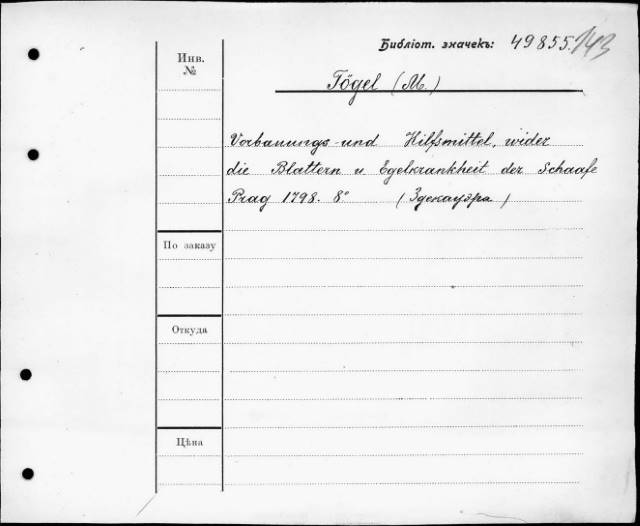 Библіот. значекъ: 49855. 143
Инв.
№
Tögel (M.)
Vorbanungs-und Hilfsmittel, wider
die Blattern u Egelkrankheit der Schaafe
Prag 1798. 8° (Здекауэра)
По заказу
Откуда
Цѣна